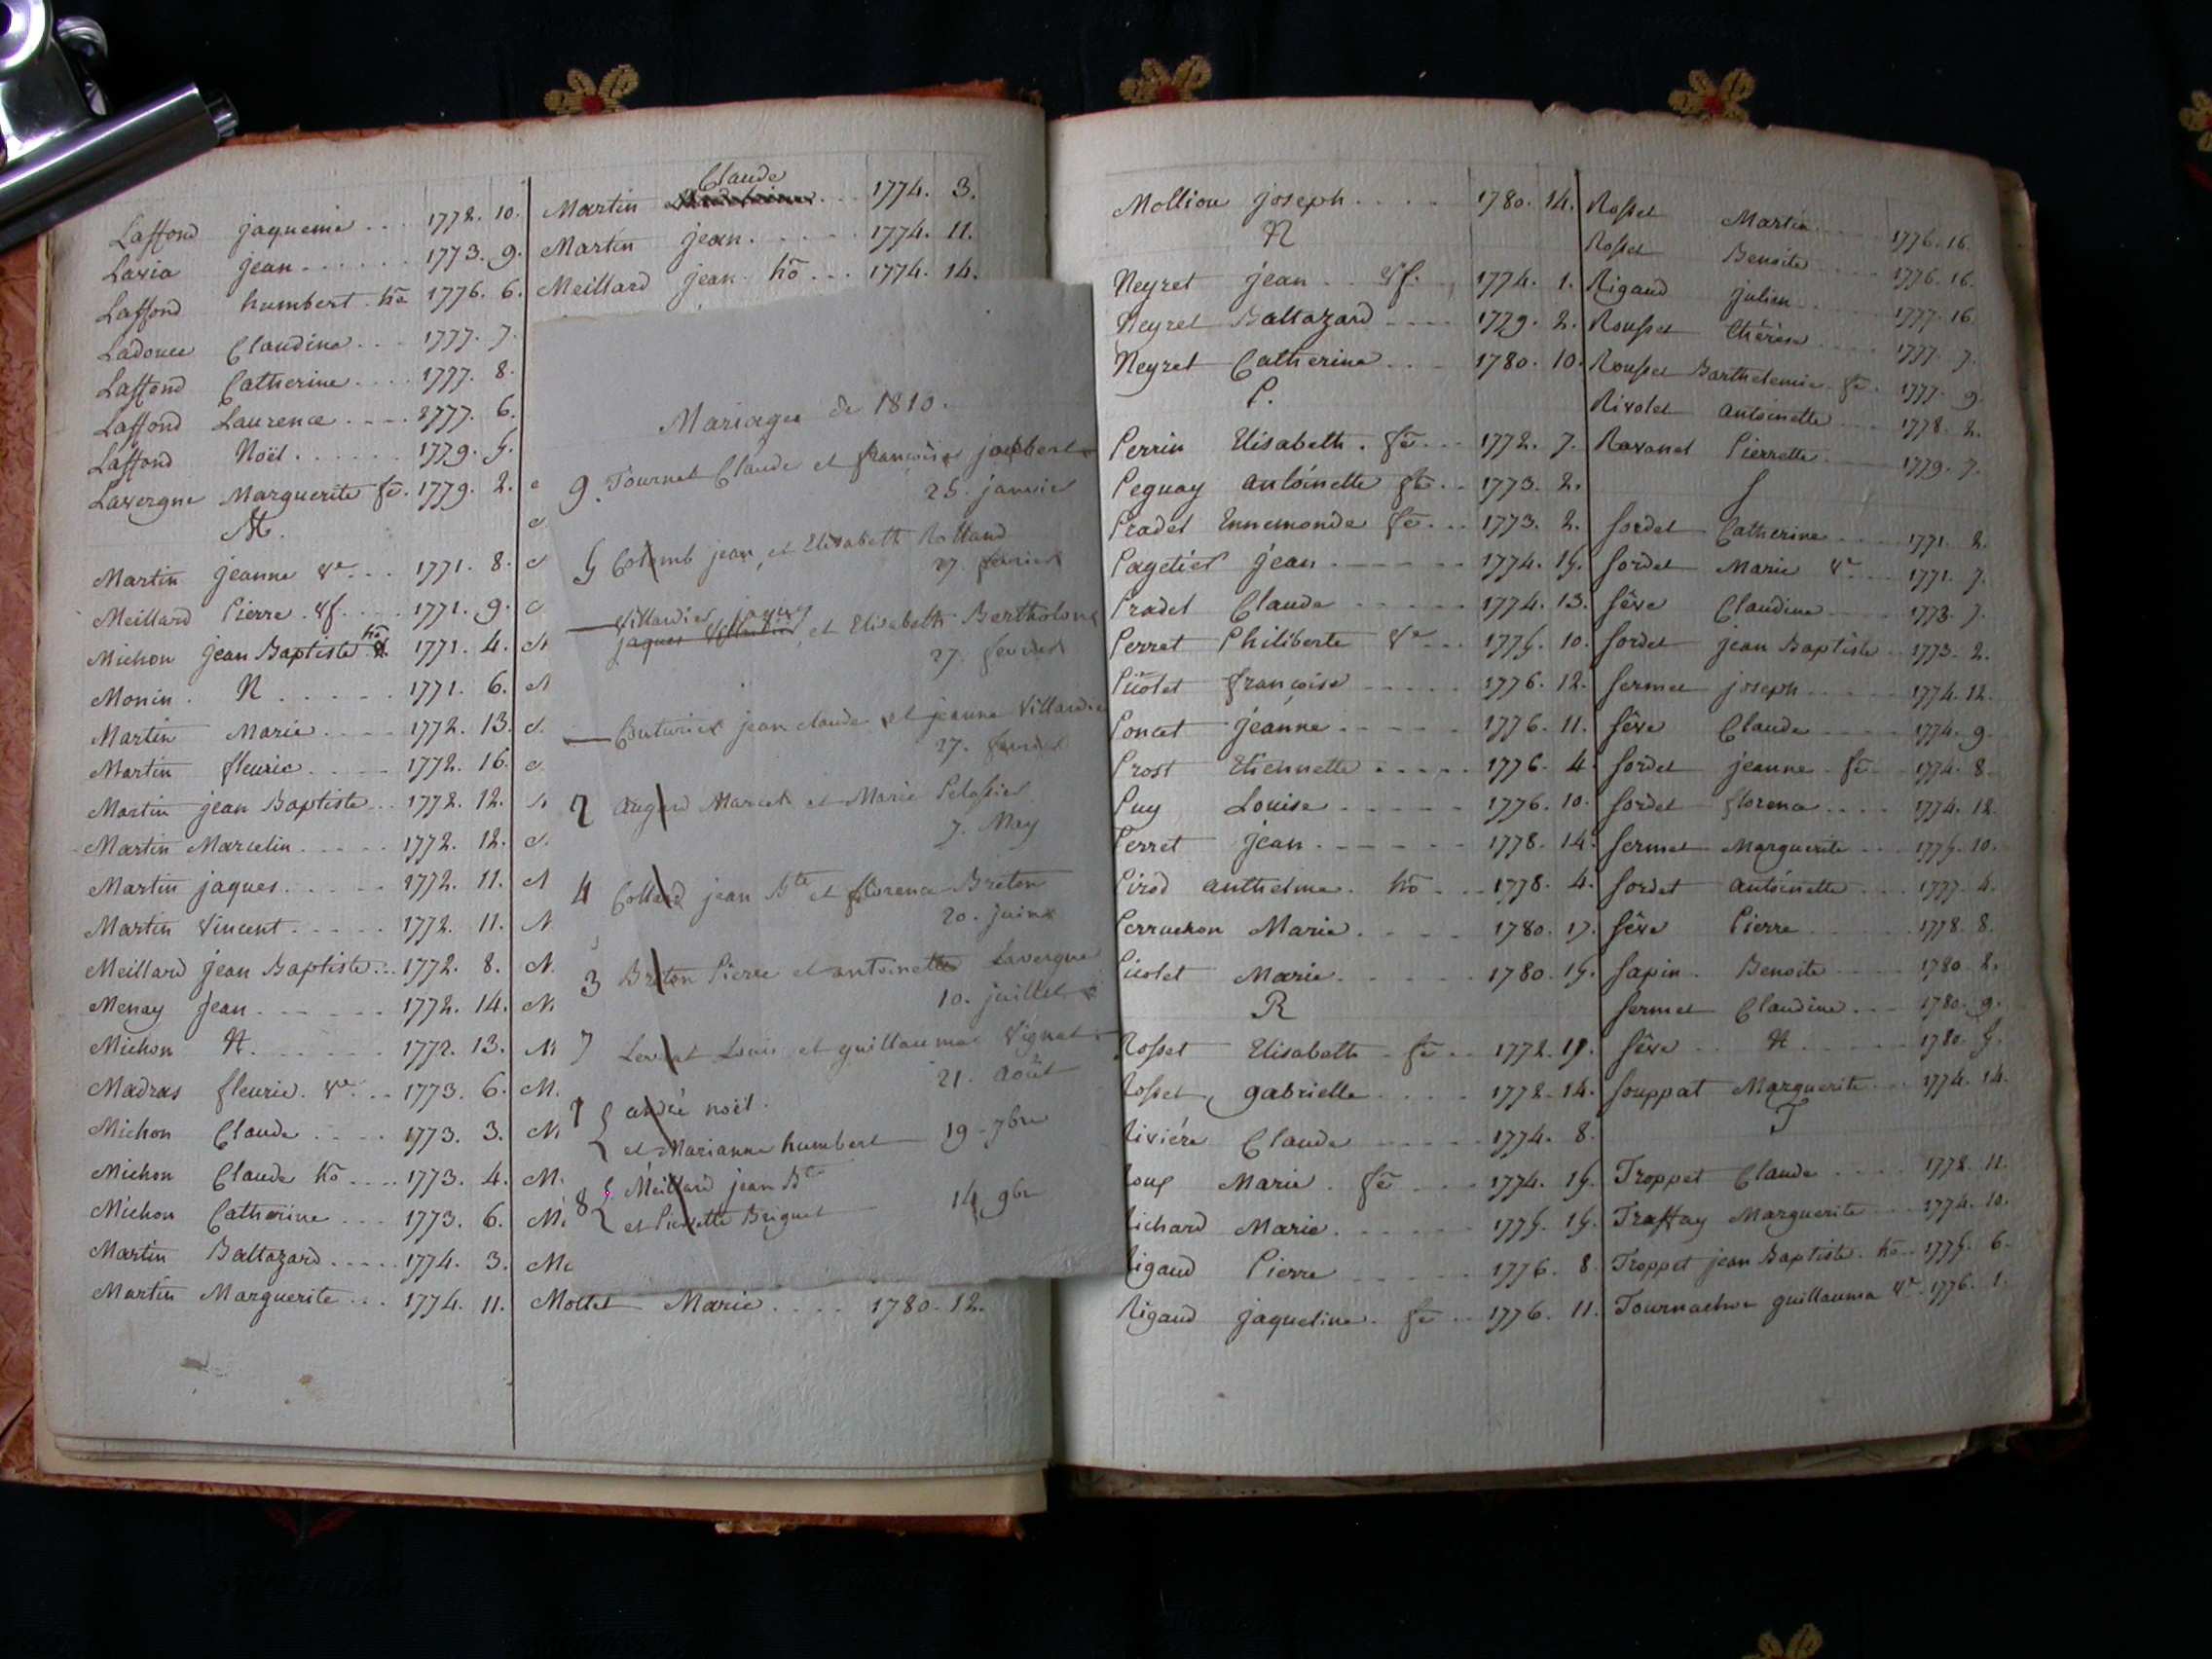 Laffond jaquemie . . . 1772. 10.
Lavia jean . . . . . . 1773. 9.
Laffond humbert. hõ 1776. 6.
Ladouce Claudine . . . 1777. 7.
Laffond Catherine . . . . 1777. 8.
Laffond Laurence . . . . 1777. 6.
Laffond Noël . . . . . . 1779. 5.
Lavergne Marguerite fẽ. 1779. 2.
M.
Martin jeanne Ve. . . 1771. 8.
Meillard Pierre. Vf. . . . 1771. 9.
Michon jean Baptiste hõ 1771. 4.
Monin. N . . . . . . 1771. 6.
Martin Marie . . . . 1772. 13.
Martin fleurie . . . . 1772. 16.
Martin jean Baptiste . . 1772. 12.
Martin Marcelin . . . . . 1772. 12.
Martin jaques . . . . . 1772. 11.
Martin Vincent . . . . . 1772. 11.
Meillard jean Baptiste . . . 1772. 8.
Menay jean . . . . . . 1772. 14.
Michon N . . . . . . 1772. 13.
Madras fleurie. Ve. . . 1773. 6.
Michon Claude . . . . 1773. 3.
Michon Claude hõ . . . . 1773. 4.
Michon Catherine . . . 1773. 6.
Martin Baltazard . . . . . 1774. 3.
Martin Marguerite . . . 1774. 11.
Claude
Martin . . . 1774. 3.
Martin jean . . . . . 1774. 11.
Meillard jean hõ . . . 1774. 14.
Mariages de 1810.
9. Tournet Claude et françoise joubert
25. janvier
5 Colomb jean, et Elisabeth Rolland
27. fevrier
Villardier jaques
jaques Villardier et Elisabeth Bertholon
27. fevrier
Couturier jean claude et jeanne Villardie
27. fevrier
2 Augard Marcel et Marie Pelossier
7. May
4 Collard jean Bte et florence Breton
20. juin
3 Breton Pierre et antoinette Lavergne
10. juillet
7 Levrat Louis et guillaume Vignat
21. août
1 andré noël.
et Marianne humbert 19 - 7bre
8 Meillard jean Bte
et Pierrette Briguet 14 9bre
Mottet Marie . . . . 1780. 12.
Molliou joseph . . . . 1780. 14.
N
Neyret jean . . Vf. 1774. 1.
Neyret Baltazard . . . . 1779. 2.
Neyret Catherine . . . 1780. 10.
P.
Perrin Elisabeth. fẽ . . 1772. 7.
Peguay antoinette fẽ . . 1773. 2.
Pradel Ennemonde fẽ . . . 1773. 2.
Pagetier jean . . . . . . 1774. 15.
Pradel Claude . . . . . 1774. 13.
Perret Philiberte Ve . . . 1775. 10.
Picolet françoise . . . . . 1776. 12.
Poncet jeanne . . . . . 1776. 11.
Prost Etiennette . . . . . 1776. 4.
Puy Louise . . . . . 1776. 10.
Perret jean . . . . . . 1778. 14.
Pirod anthelme. hõ . . . 1778. 4.
Perruchon Marie . . . . 1780. 17.
Picolet Marie . . . . . 1780. 15.
R
Rosset Elisabeth fẽ . . 1772. 15.
Rosset gabrielle . . . . 1772. 14.
Riviére Claude . . . . . 1774. 8.
Roux Marie. fẽ . . . 1774. 15.
Richard Marie . . . . . 1775. 15.
Rigaud Pierre . . . . . 1776. 8.
Rigaud jaqueline. fẽ . . 1776. 11.
Rosset Martin . . . 1776. 16.
Rosset Benoite . . . 1776. 16.
Rigaud julien . . . 1777. 16.
Rousset thérèse . . . 1777. 7.
Rousset Barthelemie fẽ. 1777. 9.
Rivolet antoinette . . . 1778. 2.
Ravanel Pierrette . . . 1779. 7.
S
Sordet Catherine . . . . 1771. 2.
Sordet Marie Ve . . . 1771. 7.
Sêve Claudine . . . 1773. 7.
Sordet jean Baptiste . . 1773. 2.
Sermet joseph . . . . . 1774. 12.
Sêve Claude . . . . . 1774. 9.
Sordet jeanne. fẽ . . 1774. 8.
Sordet florence . . . . 1774. 12.
Sermet Marguerite . . . 1775. 10.
Sordet antoinette . . . 1777. 4.
Sêve Pierre . . . . . 1778. 8.
Sapin. Benoite . . . . 1780. 2.
Sermet Claudine . . . 1780. 9.
Sêve . . N . . . . . 1780. 5.
Souppat Marguerite . . . 1774. 14.
T
Troppet Claude . . . . 1772. 11.
Traffay Marguerite . . . 1774. 10.
Troppet jean Baptiste. hõ . . 1775. 6.
Tournachon guillauma Ve. 1776. 1.